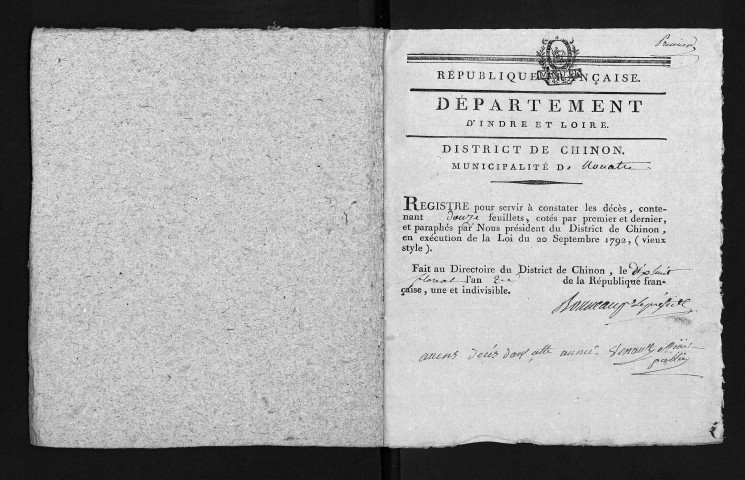 Premier
RÉPUBLIQUE FRANÇAISE.
DÉPARTEMENT
D'INDRE ET LOIRE.
DISTRICT DE CHINON.
MUNICIPALITÉ De Nouatre
REGISTRE pour servir à constater les décès, conte-
nant douze feuillets, cotés par premier et dernier,
et paraphés par Nous président du District de Chinon,
en exécution de la Loi du 20 Septembre 1792, (vieux
style).
Fait au Directoire du District de Chinon, le dix huit
floreal l'an 2e de la République fran-
çaise, une et indivisible.
aucuns décés dans cette année